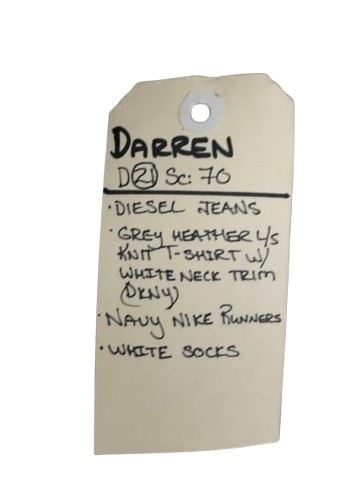 DARREN
D 21 Sc: 70
• DIESEL JEANS
• GREY HEATHER L/S
KNIT T-SHIRT W/
WHITE NECK TRIM
(DKNY)
• NAVY NIKE RUNNERS
• WHITE SOCKS